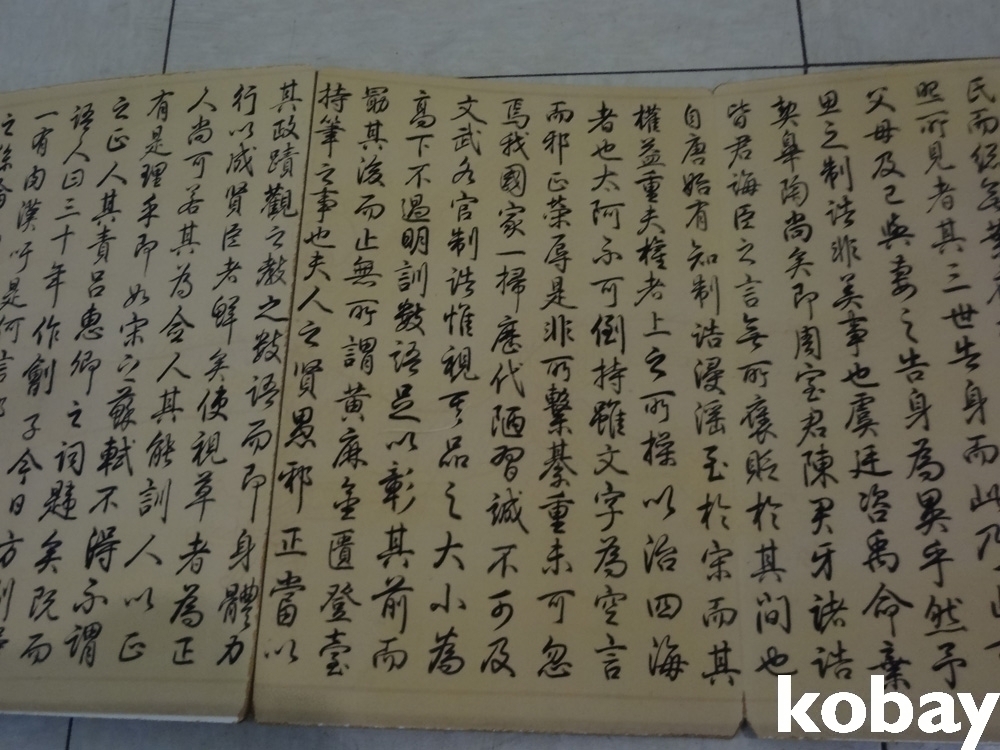 民而
照所見者其三世告身而此乃
父母及已與妻之告身為異乎然予
思之制誥非美事也虞廷咨禹命棄
契皋陶尚矣即周室君陳君牙諸誥
皆君誨臣之言無所褒貶於其間也
自唐始有知制誥浸淫至於宋而其
權益重夫權者上之所操以治四海
者也太阿不可倒持雖文字為空言
而邪正榮辱是非所繫綦重未可忽
焉我國家一掃歷代陋習誠不可及
文武各官制誥惟視其品之大小為
高下不過明訓數語足以彰其前而
勗其後而止無所謂黃麻金匱登臺
持筆之事也夫人之賢愚邪正當以
其政蹟觀之教之數語而即身體力
行以成賢臣者鮮矣使視草者為正
人尚可若其為僉人其能訓人以正
有是理乎即如宋之蘇軾不得不謂
之正人其責呂惠卿之詞韙矣既而
語人曰三十年作劊子今日方剮
一有肉漢吁是何言
之孫
kobay